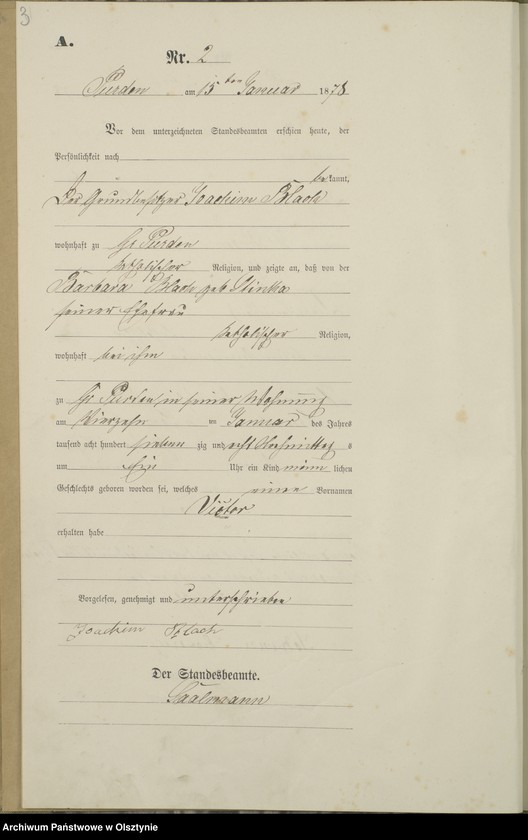 3
A.
Nr. 2
Purden am 15ten Januar 1878
Vor dem unterzeichneten Standesbeamten erschien heute, der
Persönlichkeit nach
bekannt,
Der Grundbesitzer Joachim Black
wohnhaft zu Gr Purden
katholischer Religion, und zeigte an, daß von der
Barbara Black geb
seiner Ehefrau
katholischer Religion,
wohnhaft bei ihm
zu Gr Purden in seiner Wohnung
am Vierzehn ten Januar des Jahres
tausend acht hundert sieben zig und acht Nachmittag s
um Ein Uhr ein Kind männ lichen
Geschlechts geboren worden sei, welches einen Vornamen
Victor
erhalten habe
Vorgelesen, genehmigt und unterschrieben
Joachim Black
Der Standesbeamte.
Saalmann
Archiwum Państwowe w Olsztynie